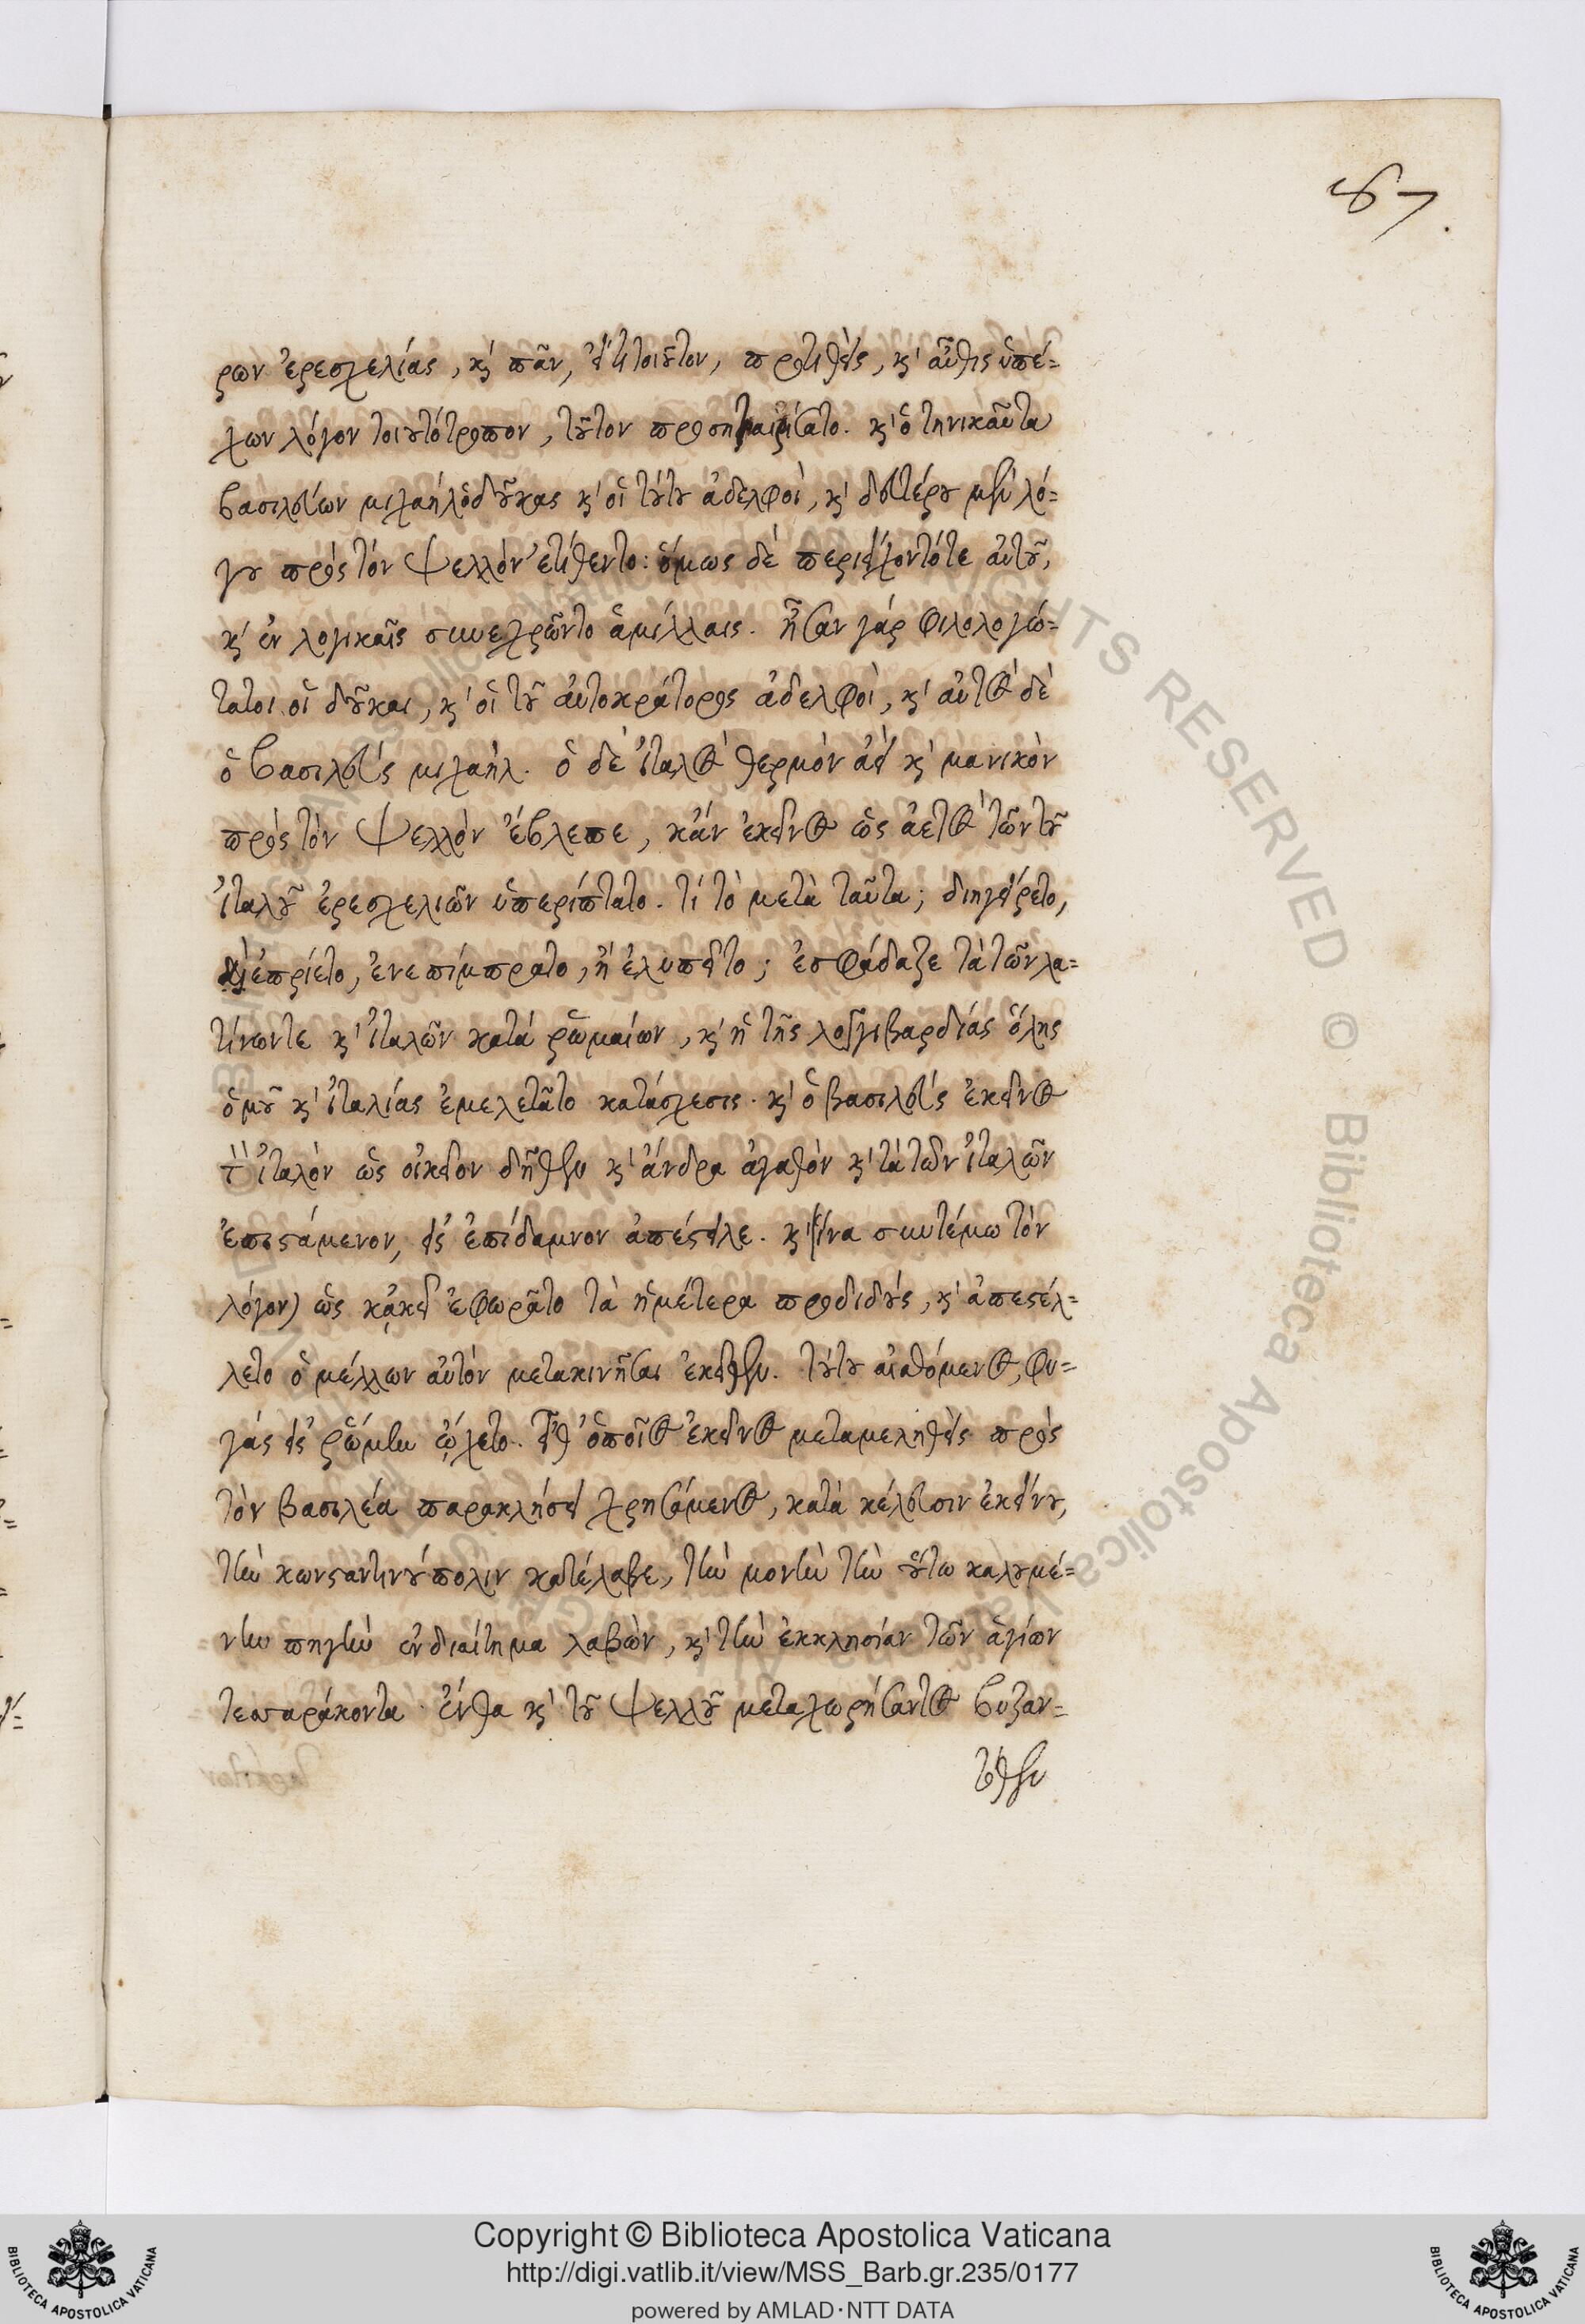 87.
ρων ἐρεσχελίας, κ' πᾶν, εἴτι τοιοῦτον, προτιθεὶς, κ' αὖθις ὑπέ=
χων λόγον τοιουτότροπον, τοῦτον προσηταιρίσατο. κ' ὁ τηνικαῦτα
βασιλεύων μιχαὴλ ὁ δούκας κ' οἱ τούτου ἀδελφοὶ, κ' δευτέρου μὲν λό=
γου πρὸς τὸν Ψελλὸν ἐτίθεντο: ὅμως δὲ περιείχοντότε αὐτοῦ,
κ' ἐν λογικαῖς συνεχρῶντο ἁμίλλαις. ἦσαν γάρ φιλολογώ=
τατοι οἱ δοῦκαι, κ' οἱ τοῦ αὐτοκράτορος ἀδελφοὶ, κ' αὐτὸς δὲ
ὁ βασιλεὺς μιχαὴλ. ὁ δὲ ἰταλὸς θερμὸν ἀεὶ κ' μανικὸν
πρὸς τὸν Ψελλὸν ἔβλεπε, κἂν ἐκεῖνος ὡς ἀετὸς τῶν τοῦ
ἰταλοῦ ἐρεσχελιῶν ὑπερίπτατο. τί τὸ μετὰ ταῦτα; διηγείρετο,
διεπρίετο, ἐνεπίμπρατο, ἢ ἐλυπεῖτο; ἐσφάδαζε τὰ τῶν λα=
τίνωντε κ' ἰταλῶν κατά ῥωμαίων, κ' ἡ τῆς λογγιβαρδίας ὅλης
ὁμοῦ κ' ἰταλίας ἐμελετᾶτο κατάσχεσις. κ' ὁ βασιλεὺς ἐκεῖνος
τὸν ἰταλὸν ὡς οἰκεῖον δῆθεν κ' ἄνδρα ἀγαθὸν κ' τὰ τῶν ἰταλῶν
ἐπιστάμενον, εἰς ἐπίδαμνον ἀπέστειλε. κ' (ἵνα συντέμω τὸν
λόγον) ὡς κἀκεῖ ἐφωρᾶτο τὰ ἡμέτερα προδιδοὺς, κ' ἀπεστέλ=
λετο ὁ μέλλων αὐτὸν μετακινῆσαι ἐκεῖθεν. τούτου αἰσθόμενος, φυ=
γὰς εἰς ῥώμην ᾤχετο. εἶθ' ὁποῖος ἐκεῖνος μεταμεληθεὶς πρὸς
τὸν βασιλέα παρακλήσει χρησάμενος, κατὰ κέλευσιν ἐκείνου,
τὴν κωνσταντινούπολιν κατέλαβε, τὴν μονὴν τὴν οὕτω καλουμέ=
νην πηγὴν ἐνδιαίτημα λαβὼν, κ' τὴν ἐκκλησίαν τῶν ἁγίων
τεσσαράκοντα. ἔνθα κ' τοῦ Ψελλοῦ μεταχωρήσαντος βυζαν=
τόθεν
Copyright © Biblioteca Apostolica Vaticana
http://digi.vatlib.it/view/MSS_Barb.gr.235/0177
powered by AMLAD·NTT DATA